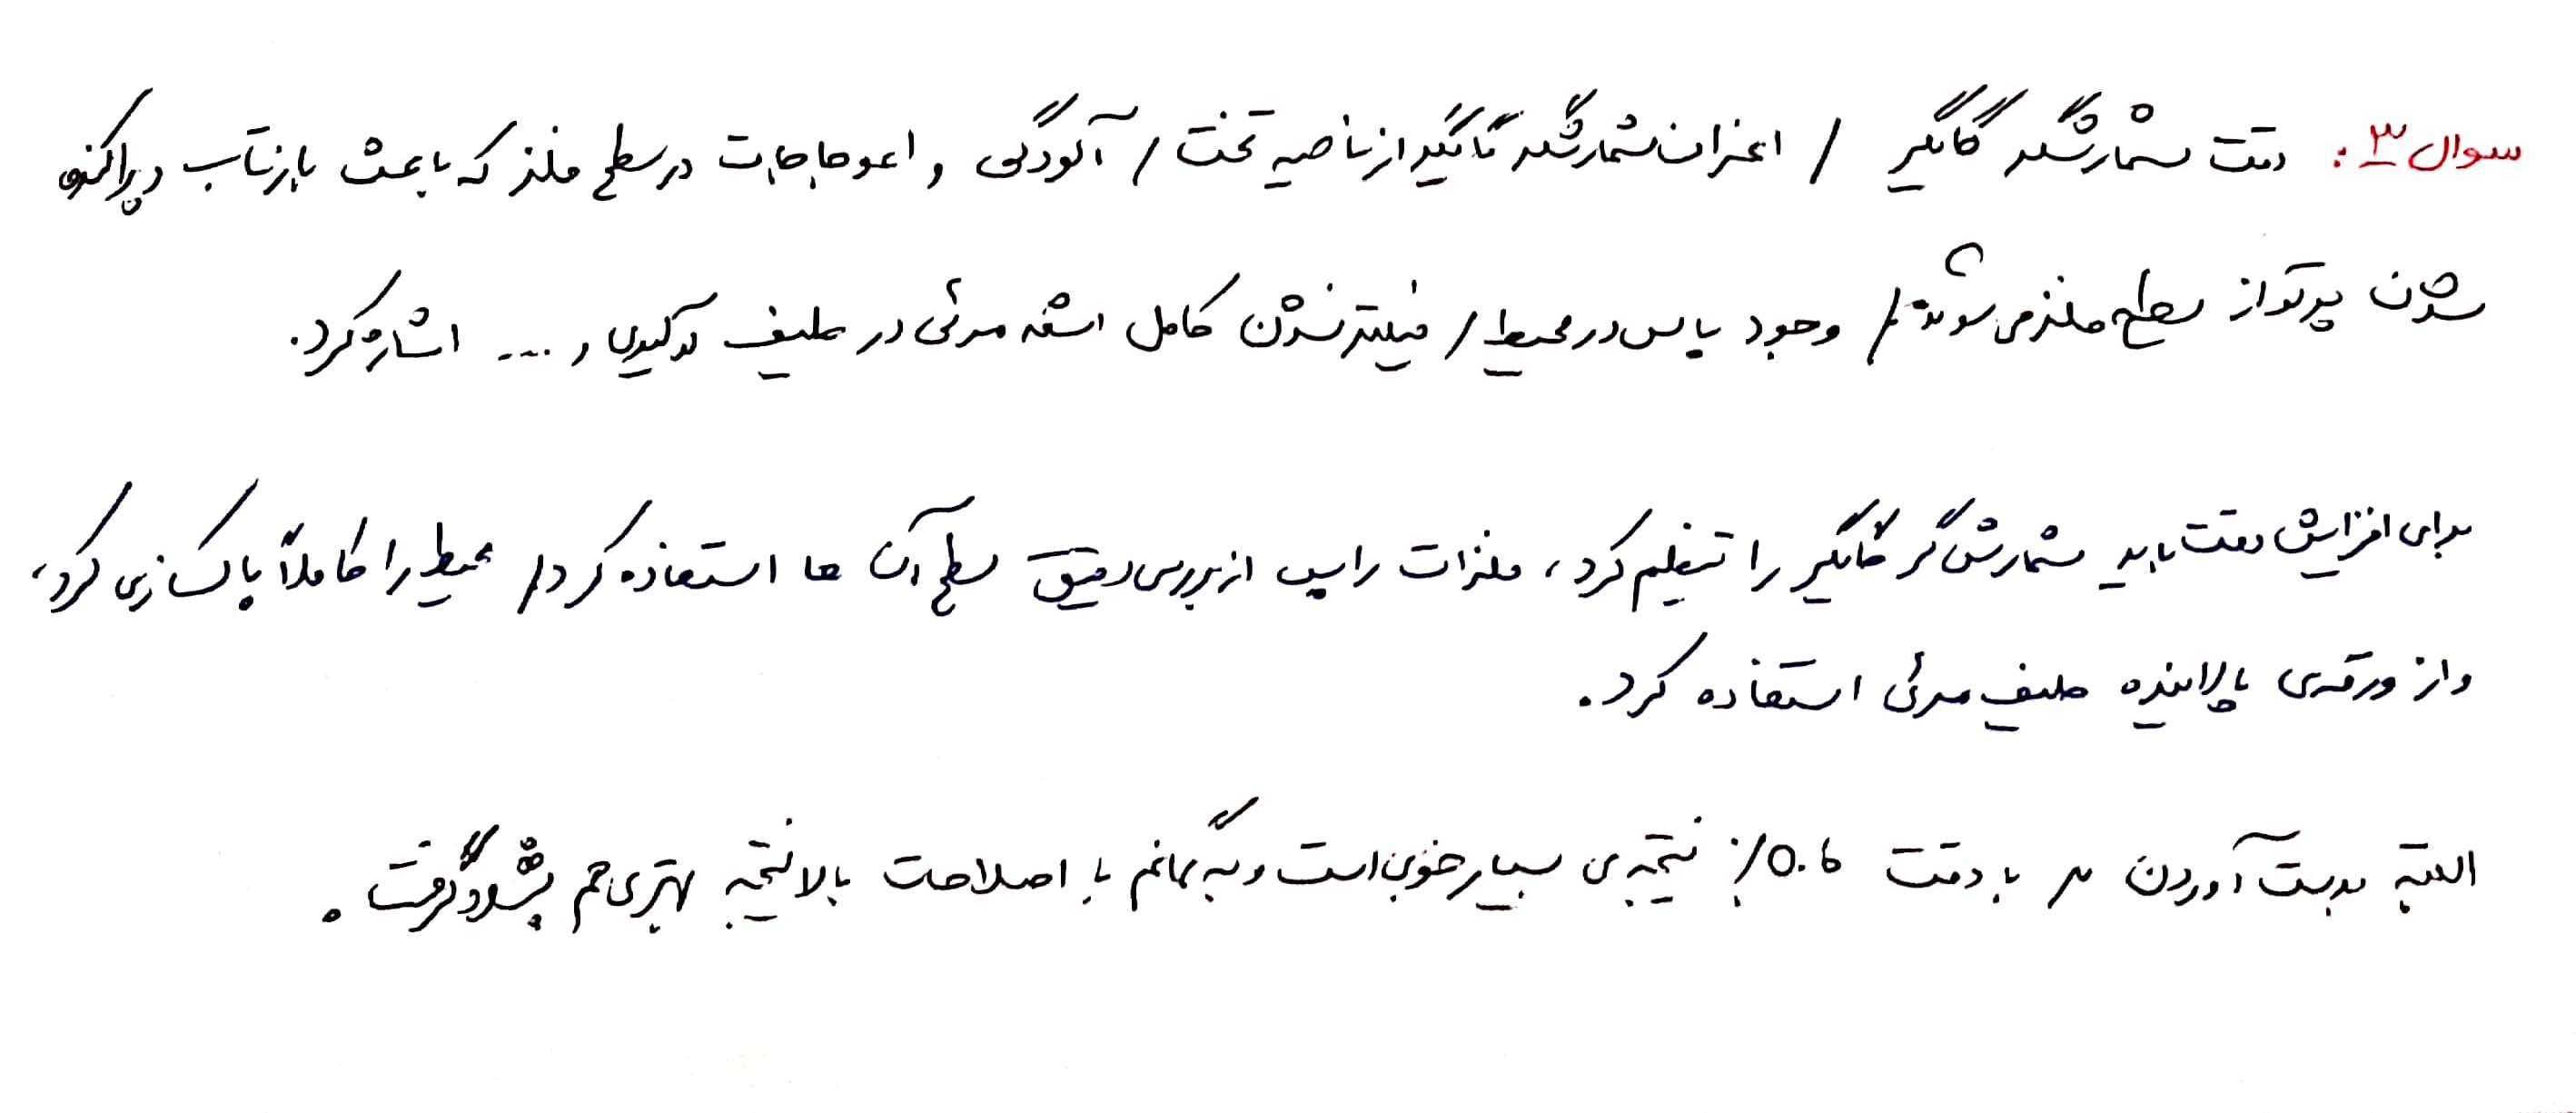 سوال ۳: دقت شمارشگر گایگر / انحراف شمارشگر گایگر از ناحیه تخت / آلودگی و اعوجاجات در سطح فلز که باعث بازتاب و پراکنده
شدن پرتو از سطح فلز می شوند / وجود بایاس در محیط / فیلتر نشدن کامل اشعه مرئی در طیف و ... اشاره کرد.
برای افزایش دقت باید شمارش گر گایگر را تنظیم کرد، فلزات را پس از بررسی دقیق سطح آن ها استفاده کرد / محیط را کاملاً پاکسازی کرد،
و از ورقه‌ی پالاینده طیف مرئی استفاده کرد.
البته بدست آوردن μ با دقت 0.6٪ نتیجه‌ی بسیار خوبی است و به گمانم با اصلاحات بالا نتیجه بهتری هم بشود گرفت.